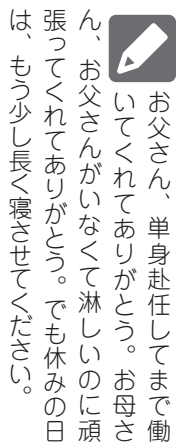 お父さん、単身赴任してまで働
いてくれてありがとう。お母さ
ん、お父さんがいなくて淋しいのに頑
張ってくれてありがとう。でも休みの日
は、もう少し長く寝させてください。